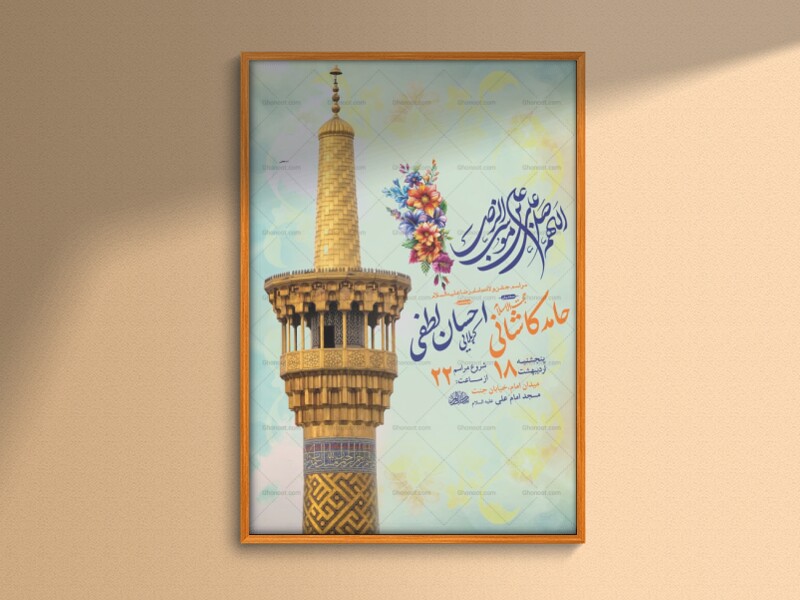 اللهم صل علی علی بن موسی الرضا
مراسم جشن ولادت امام رضا علیه السلام
حجت الاسلام
حامد کاشانی
کربلایی
احسان لطفی
پنجشنبه
۱۸ اردیبهشت
شروع مراسم
از ساعت: ۲۲
میدان امام، خیابان جنت
مسجد امام علی علیه السلام
Ghonoot.com